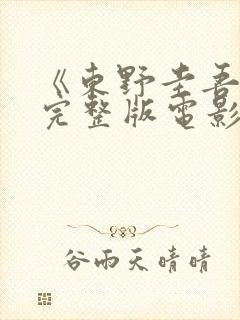 《東野圭吾
完整版電影
谷雨天晴晴